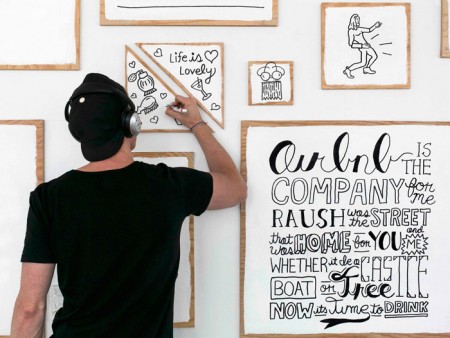 Life is
Lovely
airbnb IS
THE
COMPANY for
me
RAUSH was the STREET
that was HOME for YOU and ME
WHETHER it be a CASTLE
BOAT or Tree
NOW it's Time to DRINK